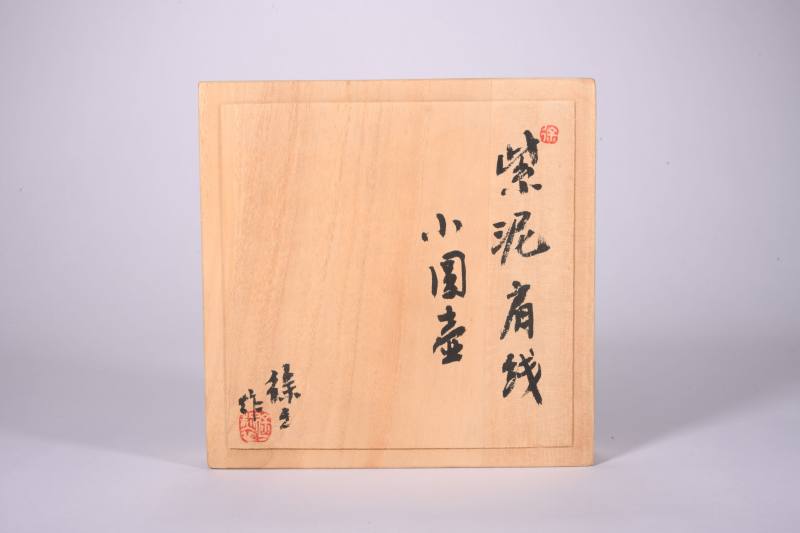 紫泥肩线
小圆壶
徐立
作